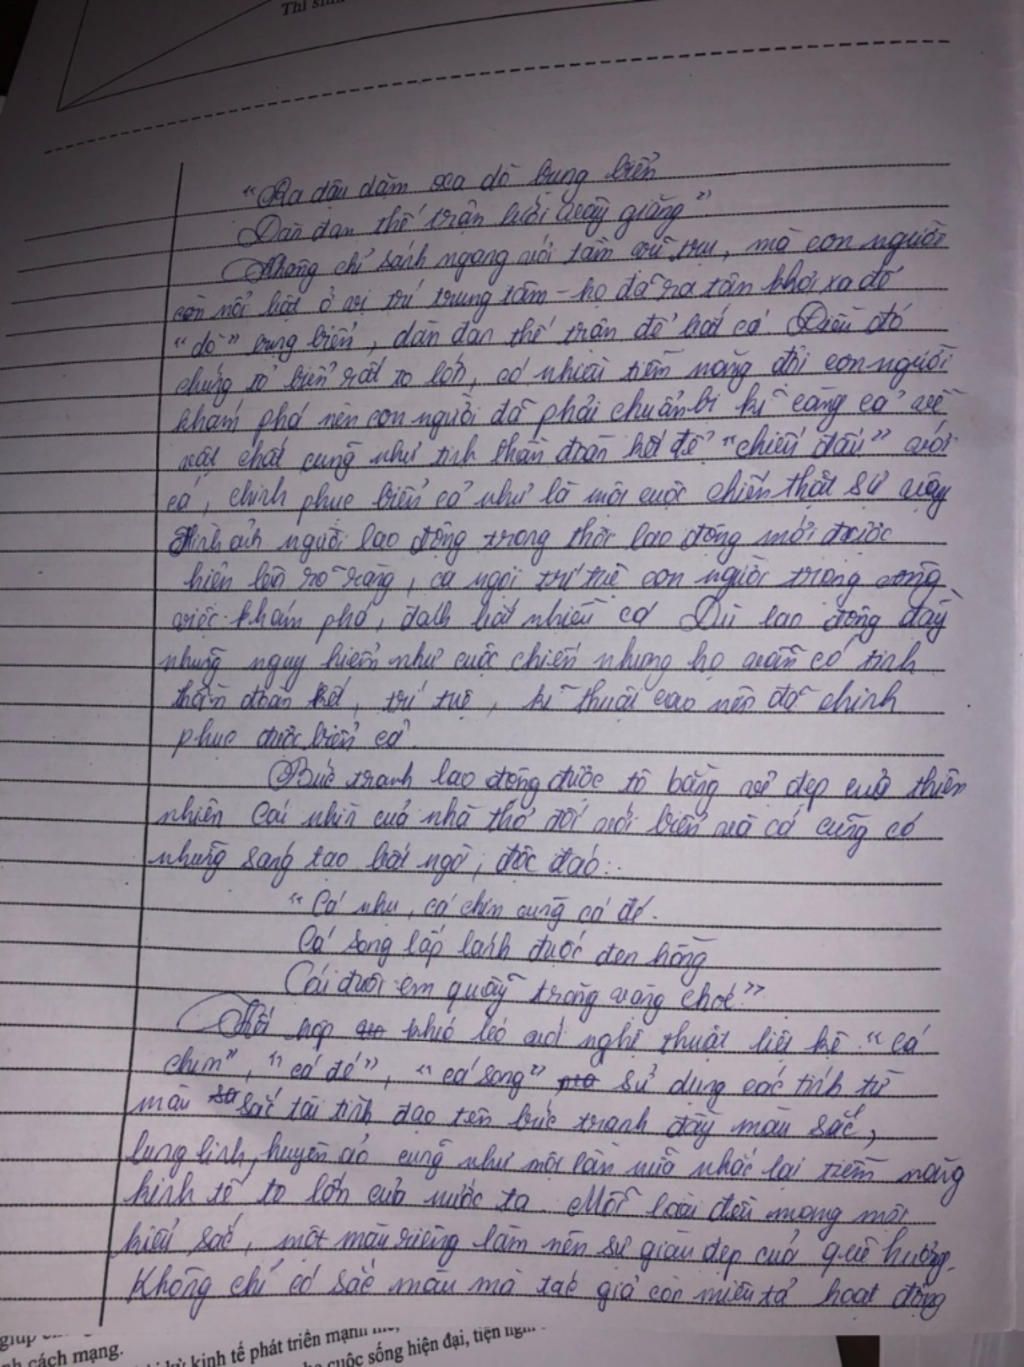 Thí sinh
"Ra đậu dặm xa dò bụng biển
Dàn đan thế trận lưới vây giăng"
Không chỉ sánh ngang với tầm vũ trụ, mà con người
còn nổi bật ở vị trí trung tâm – họ đã ra tận khơi xa để
"dò" bụng biển, dàn đan thế trận để bắt cá Điều đó
chứng tỏ biển rất to lớn, có nhiều tiềm năng đòi con người
khám phá nên con người đã phải chuẩn bị kĩ càng cả về
vật chất cũng như tinh thần đoàn kết để "chiến đấu" với
cá, chinh phục biển cả như là một cuộc chiến thật sự vậy
Hình ảnh người lao động trong thời lao động mới được
hiện lên rõ ràng, ca ngợi trí tuệ con người trong công
việc khám phá, đánh bắt nhiều cá Dù lao động đầy
những nguy hiểm như cuộc chiến nhưng họ vẫn có tinh
thần đoàn kết, trí tuệ, kĩ thuật cao nên đã chinh
phục được biển cả.
Bức tranh lao động được tô bằng vẻ đẹp của thiên
nhiên Cái nhìn của nhà thơ đối với biển và cá cũng có
những sáng tạo bất ngờ, độc đáo:
"Cá nhụ, cá chim cùng cá đé.
Cá song lấp lánh đuốc đen hồng
Cái đuôi em quẫy trăng vàng choé"
hợp khéo léo với nghệ thuật liệt kê "cá
chim", "cá đé", "cá song" sử dụng các tính từ
màu sắc tài tình đạo tên bức tranh đầy màu sắc,
lung linh, huyền ảo cũng như một lần nữa nhắc lại tiềm năng
kinh tế to lớn của nước ta. Mỗi loài đều mang một
kiểu sắc, một màu riêng làm nên sự giàu đẹp của quê hương.
Không chỉ có sắc màu mà tác giả còn miêu tả hoạt động
giúp
cách mạng.
kinh tế phát triển mạnh
cuộc sống hiện đại, tiện